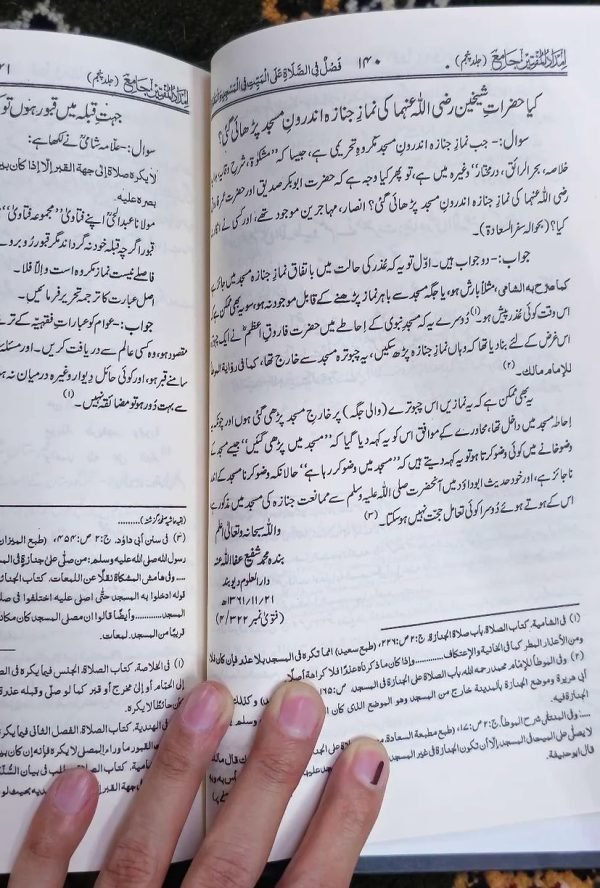 امداد المفتین جامع (جلد پنجم)
۱۴۰
فَصْلٌ فِي الصَّلَاةِ عَلَى الْمَيِّتِ فِي الْمَسْجِدِ
کیا حضراتِ شیخین رضی اللہ عنہما کی نمازِ جنازہ اندرونِ مسجد پڑھائی گئی؟
سوال:- جب نمازِ جنازہ اندرونِ مسجد مکروہِ تحریمی ہے، جیسا کہ ’’مشکوٰۃ، شرح وقایہ
خلاصہ، بحرالرائق، درمختار‘‘ وغیرہ میں ہے، تو پھر کیا وجہ ہے کہ حضرت ابوبکر صدیق اور حضرت عمر فاروق
رضی اللہ عنہما کی نمازِ جنازہ اندرونِ مسجد پڑھائی گئی؟ انصار، مہاجرین موجود تھے، اور کسی نے انکار
کیا؟ (بحوالہ سفر السعادة)۔
جواب:- دو جواب ہیں۔ اوّل تو یہ کہ عذر کی حالت میں باتفاق نمازِ جنازہ مسجد میں جائز ہے
کما صرّح بہ الشامی، مثلاً بارش ہو، یا جگہ مسجد سے باہر نماز پڑھنے کے قابل موجود نہ ہو، سو یہ بھی ممکن ہے کہ
اس وقت کوئی عذر پیش ہو۔(۱) دُوسرے یہ کہ مسجدِ نبوی کے اِحاطے میں حضرت فاروقِ اعظمؓ نے ایک چبوترہ
اس غرض کے لئے بنادیا تھا کہ وہاں نمازِ جنازہ پڑھ سکیں، یہ چبوترہ مسجد سے خارج تھا، کما فی روایة الموطأ
للإمام مالک۔ (۲)
یہ بھی ممکن ہے کہ یہ نمازیں اس چبوترے (والی جگہ) پر خارجِ مسجد پڑھی گئی ہوں اور چونکہ یہ
اِحاطۂ مسجد میں داخل تھا، محاورے کے موافق اس کو یہ کہہ دیا گیا کہ ’’مسجد میں پڑھی گئیں‘‘ جیسے مسجد کے
وضوخانے میں کوئی وضو کرتا ہو تو یہ کہہ دیتے ہیں کہ ’’مسجد میں وضو کر رہا ہے‘‘ حالانکہ وضو کرنا مسجد کے اندر
ناجائز ہے، اور خود حدیثِ ابوداؤد میں آنحضرت صلی اللہ علیہ وسلم سے ممانعت جنازہ کی مسجد میں مذکور ہے
اس کے ہوتے ہوئے دُوسرا کوئی تعامل حجت نہیں ہوسکتا۔ (۳)
واللہ سبحانہ وتعالیٰ اعلم
بندہ محمد شفیع عفا اللہ عنہ
دارالعلوم دیوبند
۲۱/۱۱/۱۳۶۱ھ
(فتویٰ نمبر ۳۲۲/۴)
(۱) فی الشامیة، کتاب الصلاة، باب صلاة الجنازة، ج:۲ ص:۲۲۶، (طبع سعید) انما تکره فی المسجد بلا عذر فإن کان فلا
ومن الأعذار المطر کما فی الخانیة والاعتکاف ........ واذا کان ما ذکرناه عذرًا فلا کراهة أصلًا
(۲) وفی الموطأ للإمام محمد رحمه الله، باب الصلاة علی الجنازة فی المسجد ص:
أبی هریرة وموضع الجنازة بالمدینة خارج من المسجد وهو الموضع الذی کان
الجنازة فیه.
.... وفی المنتقی شرح الموطأ، ج:۲ ص:۱۷، (طبع مطبعة السعادة،
لا یصلّٰی علی المیت فی المسجد إلّا أن تکون الجنازة فی غیر المسجد
قال ابوحنیفة.
جہتِ قبلہ میں قبور ہوں تو
سوال:- علامہ شامیؒ نے لکھا ہے:
لا یکره صلاة إلی جهة القبر إلّا إذا کان بین
بصره علیه.
مولانا عبدالحیؒ اپنے فتاویٰ ’’مجموعہ فتاویٰ‘‘
قبور اگرچہ قبلہ خود نہ گرداند مگر قبور رُو برو
فاصلے نیست نماز مکروہ است والّا فلا۔
اصل عبارت کا ترجمہ تحریر فرمائیں۔
جواب:- عوام کو عباراتِ فقہیہ کے ترجمے
مقصود ہو، وہ کسی عالم سے دریافت کریں۔ اور مسئلہ
سامنے قبر ہو، اور کوئی حائل دیوار وغیرہ درمیان نہ ہو
سے بہت دُور ہو تو مضائقہ نہیں۔ (۱)
(بقیہ حاشیہ صفحہ گزشتہ) ........
(۳) فی سنن أبی داؤد، ج:۲ ص:۴۵۴، (طبع المیزان
رسول الله صلی الله علیه وسلم: من صلّٰی علی جنازة فی المسجد
.... وفی هامش المشکاة نقلًا عن اللمعات، کتاب الجنائز
قوله ادخلوا به المسجد حتّٰی اصلی علیه اختلفوا فی صلاة
المسجد ........ وأیضًا قالوا ان مصلی المسجد کان
قریبًا من المسجد. لمعات.
(۱) فی الخلاصة، کتاب الصلاة، الجنس فیما یکره فی
إلی الحمّام أو إلی مخرج أو قبر کما لو صلّٰی وقبله عذرة
حائطًا لا یکره.